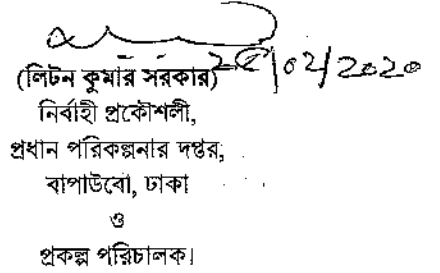 ২৫/০২/২০২০
(লিটন কুমার সরকার)
নির্বাহী প্রকৌশলী,
প্রধান পরিকল্পনার দপ্তর,
বাপাউবো, ঢাকা
ও
প্রকল্প পরিচালক।